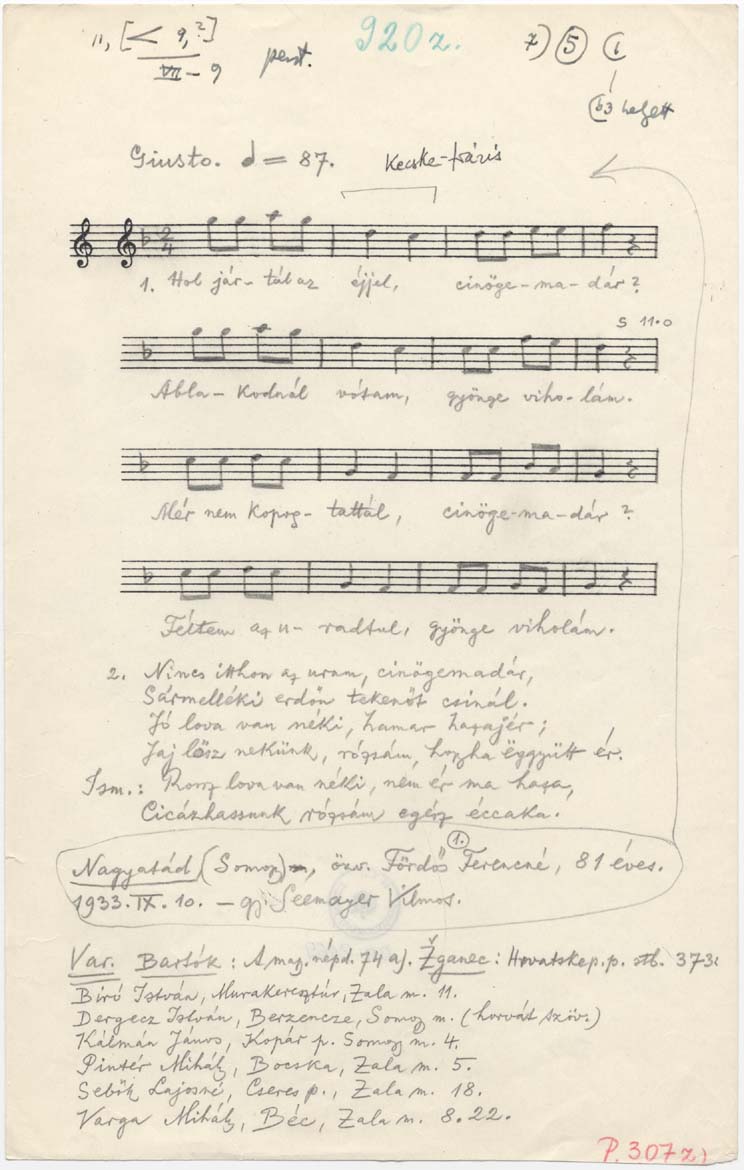 11, [< 9,?]
VII – 9
pent.
920z.
7) 5 1
b3 helyett
Giusto. = 87.
Kecske-frázis
2/4
1. Hol jár-tál az éjjel, cinöge-ma-dár?
S 11.0
Abla-kodnál vótam, gyönge viho-lám.
Mér nem kopog-tattál, cinöge-ma-dár?
Féltem az u-radtul, gyönge viholám.
2. Nincs itthon az uram, cinögemadár,
Sármelléki erdőn tekenőt csinál.
Jó lova van néki, hamar hazajér;
Jaj lösz nekünk, rózsám, hogyha ëggyütt ér.
Ism.: Rossz lova van néki, nem ér ma haza,
Cicázhassunk rózsám egész éccaka.
Nagyatád (Somogy m, özv. Fördős 1. Ferencné, 81 éves.
1933. IX. 10. – gy. Seemayer Vilmos.
Var. Bartók: A mag. népd. 74 a). Žganec: Hrvatske p. p. stb. 373.
Biró István, Murakeresztúr, Zala m. 11.
Dergecz István, Berzencze, Somogy m. (horvát szöv.)
Kálmán János, Kopár p. Somogy m. 4.
Pintér Mihály, Bocska, Zala m. 5.
Sebők Lajosné, Cseres p., Zala m. 18.
Varga Mihály, Béc, Zala m. 8. 22.
P. 307z)